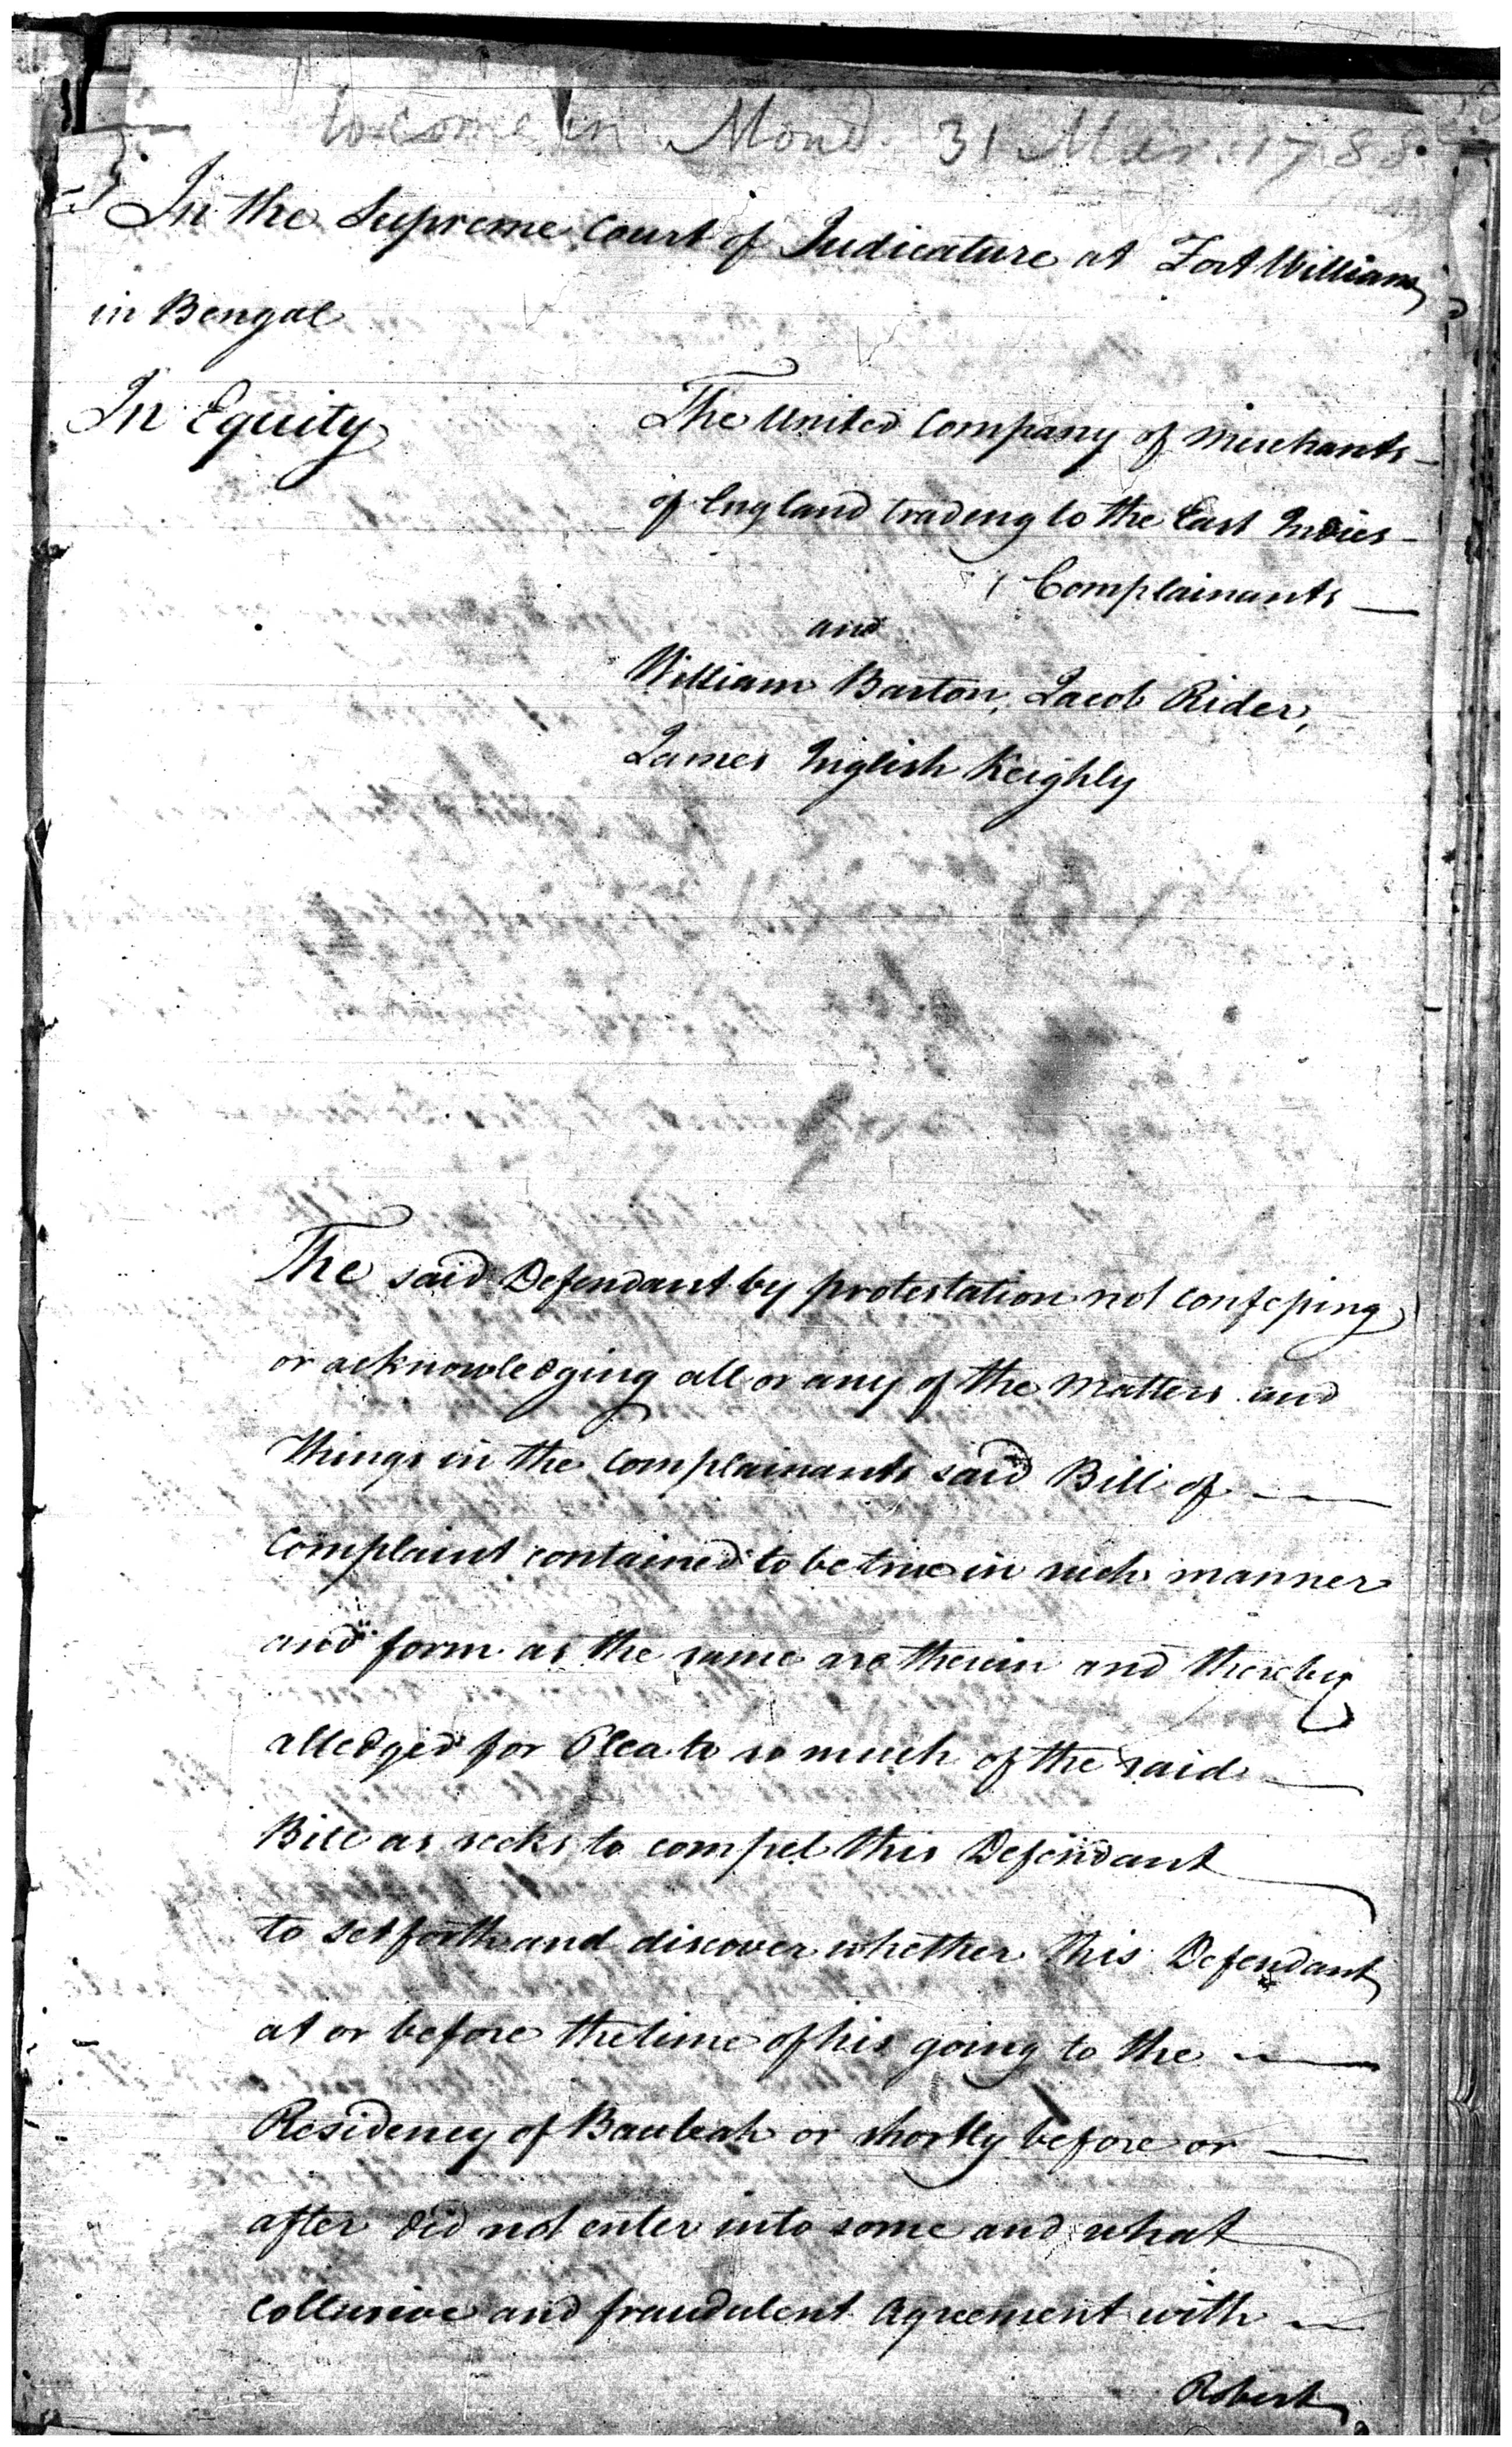 to come in Mond. 31 Mar. 1788
In the Supreme Court of Judicature at Fort William
in Bengal
In Equity
The United Company of Merchants
of England trading to the East Indies
Complainants
and
William Barton, Jacob Rider,
James Inglish Keighly
The said Defendant by protestation not confessing
or acknowledging all or any of the Matters and
things in the Complainants said Bill of
Complaint contained to be true in such manner
and form as the same are therein and thereby
alledged for Plea to so much of the said
Bill as seeks to compel this Defendant
to set forth and discover whether this Defendant
at or before the time of his going to the
Residency of Bauleah or shortly before or
after did not enter into some and what
Collusive and fraudulent Agreement with
Robert